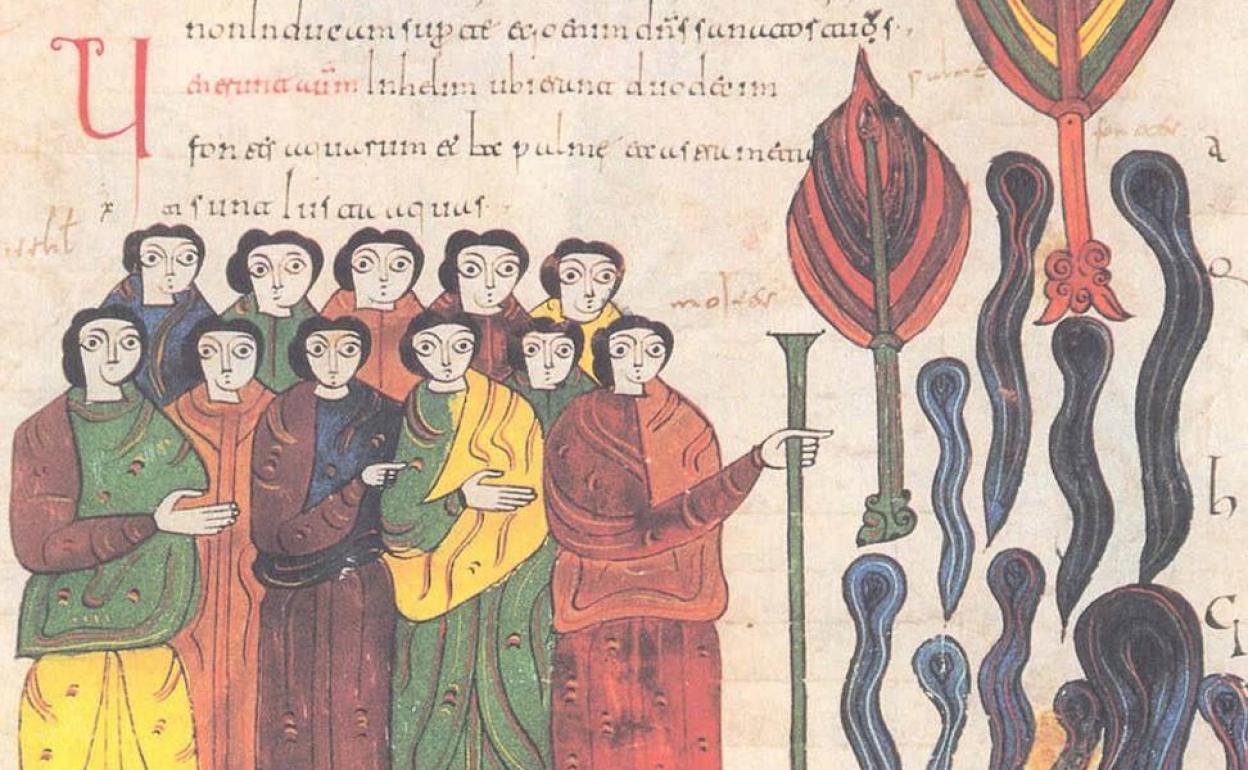 non Inducam sup te ego enim dn̄s sanator tuus.
Uenerunt aūm Inhelim ubi erant duodecim
fontes aquarum et lxx palme castrametati
sunt Iuxta aquas
palme
fontes
moises